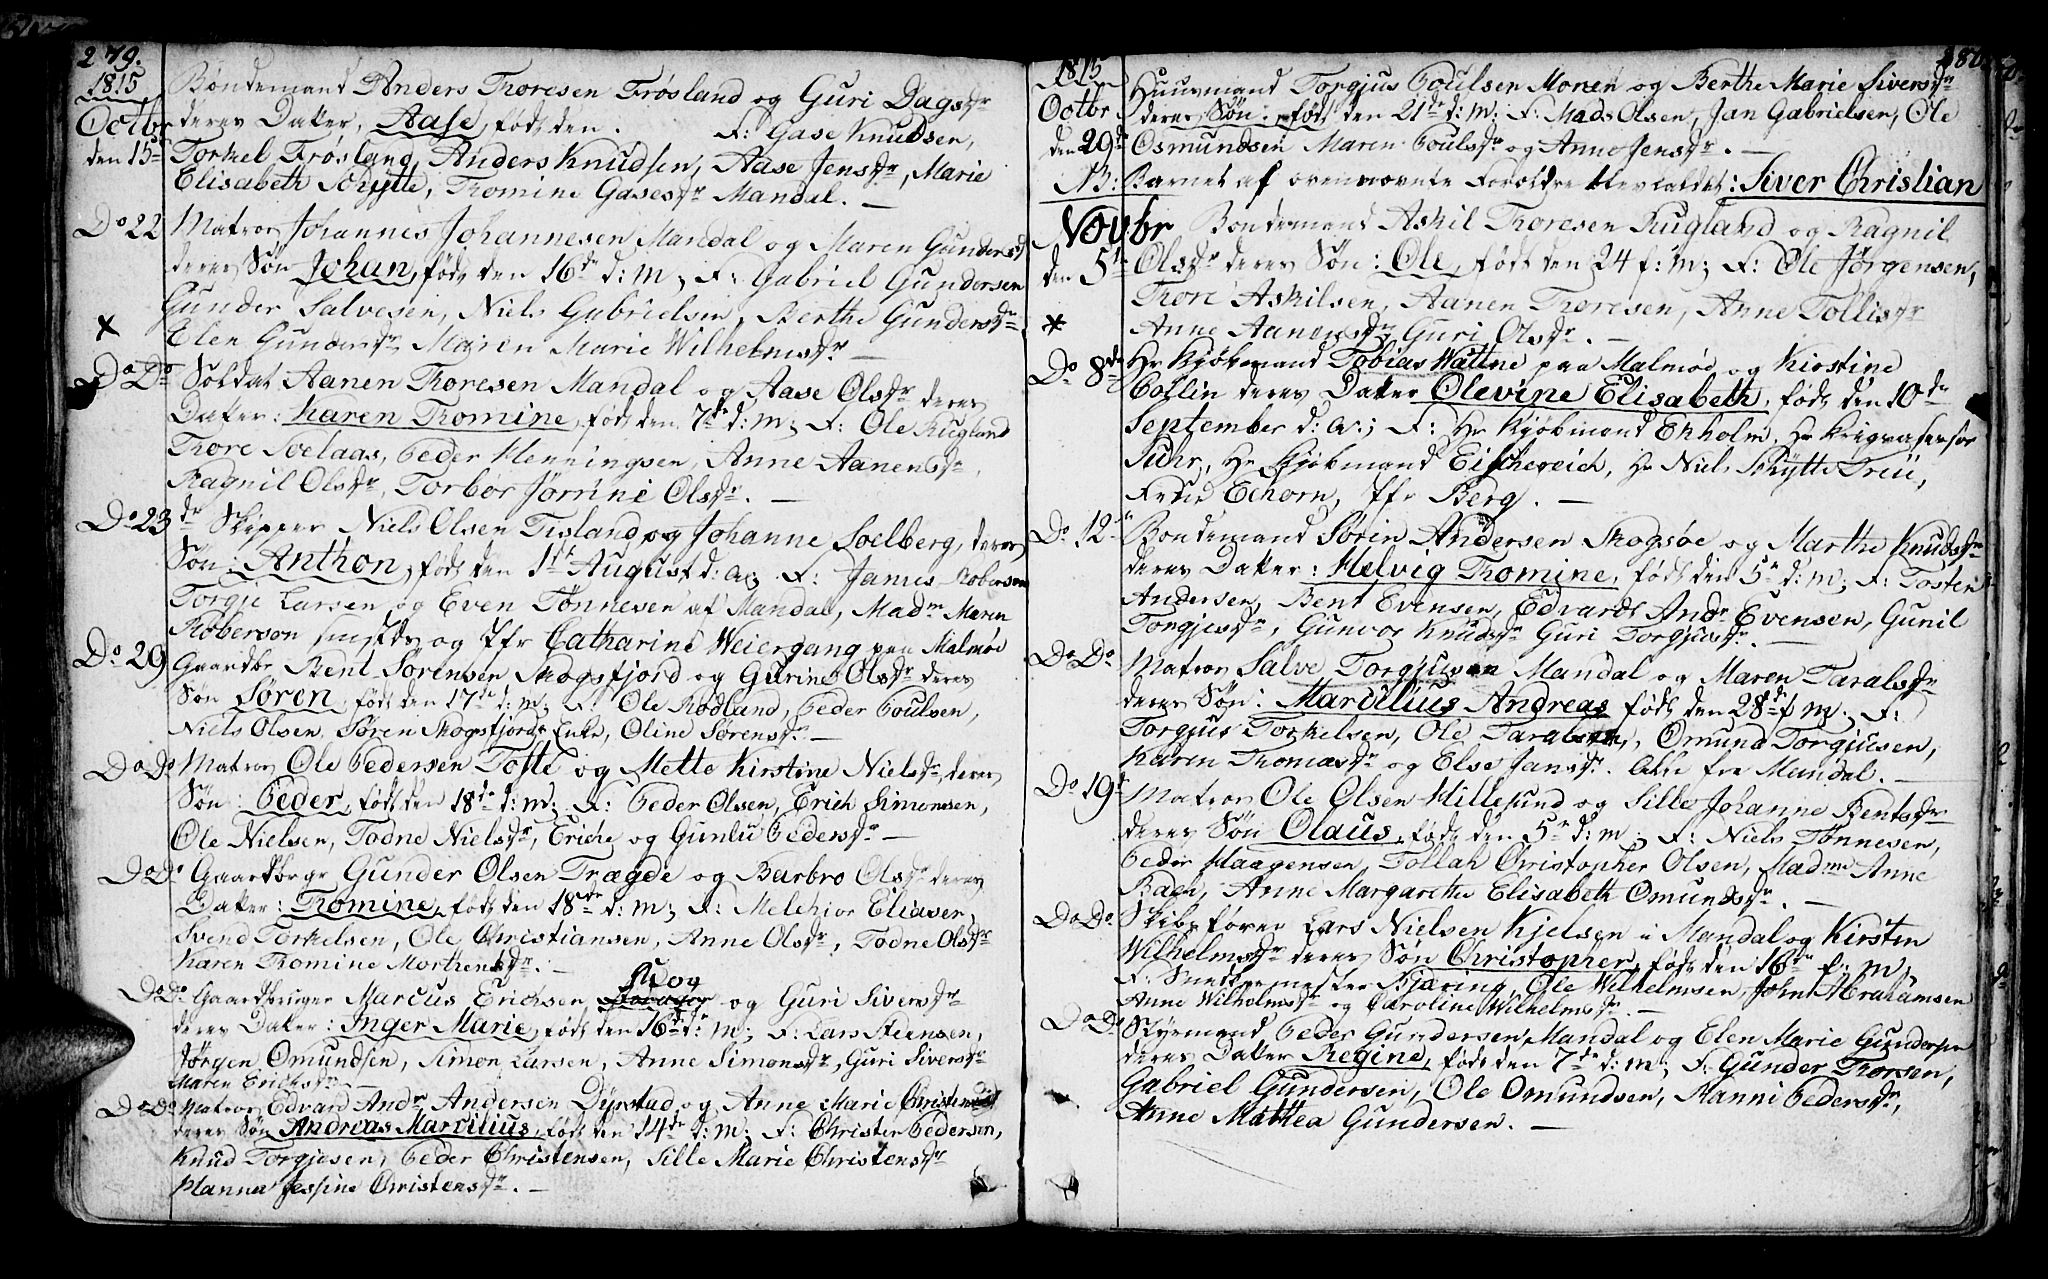 279.
1815
Octbr
den 15de
Bondemand Anders Thoresen Frøsland og Guri Dagsdr
deres Datter, Aase, født den . F: Gase Knudsen,
Torkel Frøsland, Anders Knudsen, Aase Jensdr, Marie
Elisabeth Schytte, Thomine Gasesdr Mandal. —
Do 22 Matros Johannes Johannesen Mandal og Maren Gundersd
deres Søn Johan, født den 16de d: M; F: Gabriel Gundersen
Gunder Salvesen, Niels Gabrielsen, Berthe Gundersdr
Elen Gundersdr Maren Marie Wilhelmsdr —
Do Do Soldat Aanen Thoresen Mandal og Aase Olsdr deres
Datter: Karen Thomine, født den 7de d: M; F: Ole Rugland
Thore Soelaas, Peder Henningsen, Anne Aanensdr,
Ragnil Olsdr, Torbor Jørrine Olsdr. —
Do 23de Skipper Niels Olsen Tisland og Johanne Soelberg, deres
Søn: Anthon, født den 1st August d: a; F: James Roberson
Torgje Larsen og Even Tønnesen af Mandal, Madm Maren
Roberson smstds og Jfr Catharine Weiergang paa Malmøe
Do 29 Gaardbr Bent Sørensen Skogsfjord og Gurine Olsdr deres
Søn Søren, født den 17de d: M; F: Ole Rødland, Peder Poulsen,
Niels Olsen, Søren Skogsfjords Enke, Oline Sørensdr. —
Do Do Matros Ole Pedersen Tofte og Mette Kirstine Nielsdr, deres
Søn: Peder, født den 18de d: M; F: Peder Olsen, Erich Simonsen,
Ole Nielsen, Todne Nielsdr, Eriche og Gunlu Pedersdr —
Do Do Gaardbrgr Gunder Olsen Trægde og Barbro Olsdr deres
Datter: Thomine, født den 18de d: M; F: Melchior Eliasen,
Svend Torkelsen, Ole Christiansen, Anne Olsdr, Todne Olsdr
Karen Thomine Morthensdr. —
Do Do Gaardbruger Marcus Erichsen og Guri Siversdr
deres Datter: Inger Marie, født den 16de d: M; F: Lars Steensen,
Jørgen Omundsen, Simon Larsen, Anne Simonsdr, Guri Siversdr
Maren Erichsdr
Do Do Matros Edvard Andr Andersen Dyrstad og Anne Marie Christensdr
deres Søn Andreas Marcilius, født den 14de d: M; F: Christen Pedersen,
Knud Torgjesen, Peder Christensen, Sille Marie Christensdr
Hanna Jessine Christensdr. —
280
1815
Octbr
den 29de
Huusmand Torgjus Poulsen Monen og Berthe Marie Siversdr
deres Søn: , født den 21de d: M; F: Mads Olsen, Jan Gabrielsen, Ole
Osmundsen Maren Poulsdr og Anne Jensdr. —
NB: Barnet af ovennævnte Forældre blev kaldet: Siver Christian
Novbr
den 5te
Bondemand Askil Thoresen Rugland og Ragnil
Olsdr deres Søn: Ole, født den 24 f: M; F: Ole Jørgensen,
Thore Askilsen, Aanen Thoresen, Anne Tollisdr
Anne Aanensdr Guri Olsdr. —
Do 8de Hr Kjøbmand Tobias Wattne paa Malmøe og Kirstine
Collin deres Datter Olevine Elisabeth, født den 10de
September d: a:; F: Hr Kjøbmand Ekholm, Hr Krigsassessor
Suhr, Hr Kjøbmand Eischereich, Hr Niels Schytte Treu,
Frue Echorn, Jfr Berg. —
Do 12te Bondemand Sørin Andersen Skogsøe og Marthe Knudsdr
deres Datter: Helvig Thomine, født den 5te d: M; F: Tosten
Andersen, Bent Evensen, Edvardt Andr Evensen, Gunil
Torgjesdr, Gunvor Knudsdr Guri Torgjusdr. —
Do Do Matros Salve Torgjusen Mandal og Maren Taralsdr
deres Søn: Marcilius Andreas født den 28de f M; F:
Torgjus Torkelsen, Ole Taralsen, Omund Torgjusen,
Karen Thomasdr og Else Jansdr. Alle fra Mandal. —
Do 19de Matros Ole Olsen Hillesund og Sille Johanne Bentsdr
deres Søn Olaus, født den 5te d: M; F: Niels Tønnesen,
Peder Haagensen, Tollak Christopher Olsen, Madme Anne
Bach, Anne Margarethe Elisabeth Omundsdr. —
Do Do Skibsfører Lars Nielsen Kjelsen i Mandal og Kirsten
Wilhelmsdr deres Søn Christopher, født den 16de f. M,
F: Snedkermester Bjæring, Ole Wilhelmsen, John Abrahamsen
Anne Wilhelmsdr og Caroline Wilhelmsdr. —
Do Do Styrmand Peder Gundersen Mandal og Elen Marie Gundersen
deres Datter Regine, født den 7de d: M; F: Gunder Thorsen,
Gabriel Gundersen, Ole Omundsen, Hanni Pedersdr,
Anne Mathea Gundersen. —